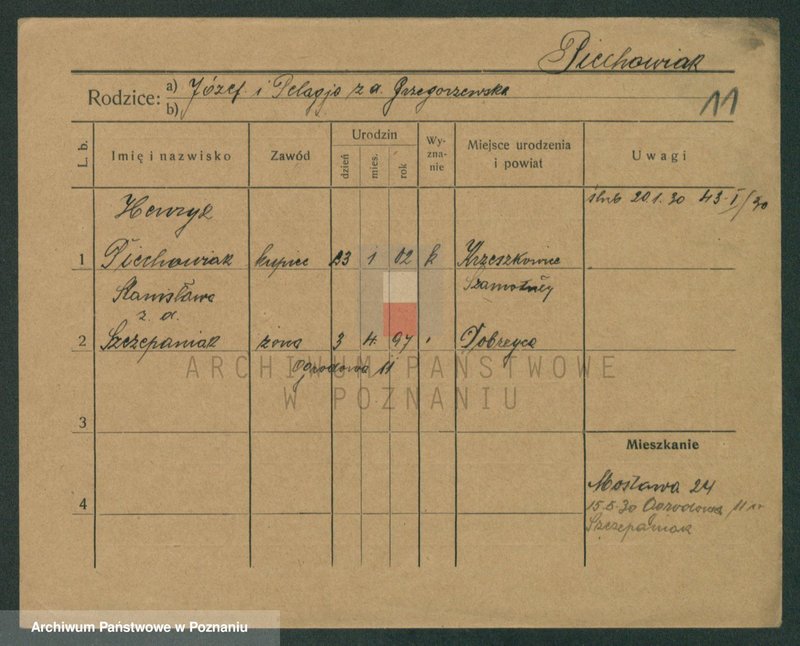 Piechowiak
Rodzice: a) Józef i Pelagja z d. Grzegorzewska
b)
11
L. b.
Imię i nazwisko
Zawód
Urodzin
dzień
mies.
rok
Wy-
zna-
nie
Miejsce urodzenia
i powiat
Uwagi
Henryk
ślub 20.1.30 43 I/30
1 Piechowiak kupiec 23 1 02 k Krzeszkowice
Stanisława Szamotuły
z. d.
2 Szczepaniak żona 3 4 97 Dobrzyca
Ogrodowa 11
ARCHIWUM PAŃSTWOWE
W POZNANIU
3
Mieszkanie
Mostawa 24
4
15.5.30 Ogrodowa 11
Szczepaniak
Archiwum Państwowe w Poznaniu